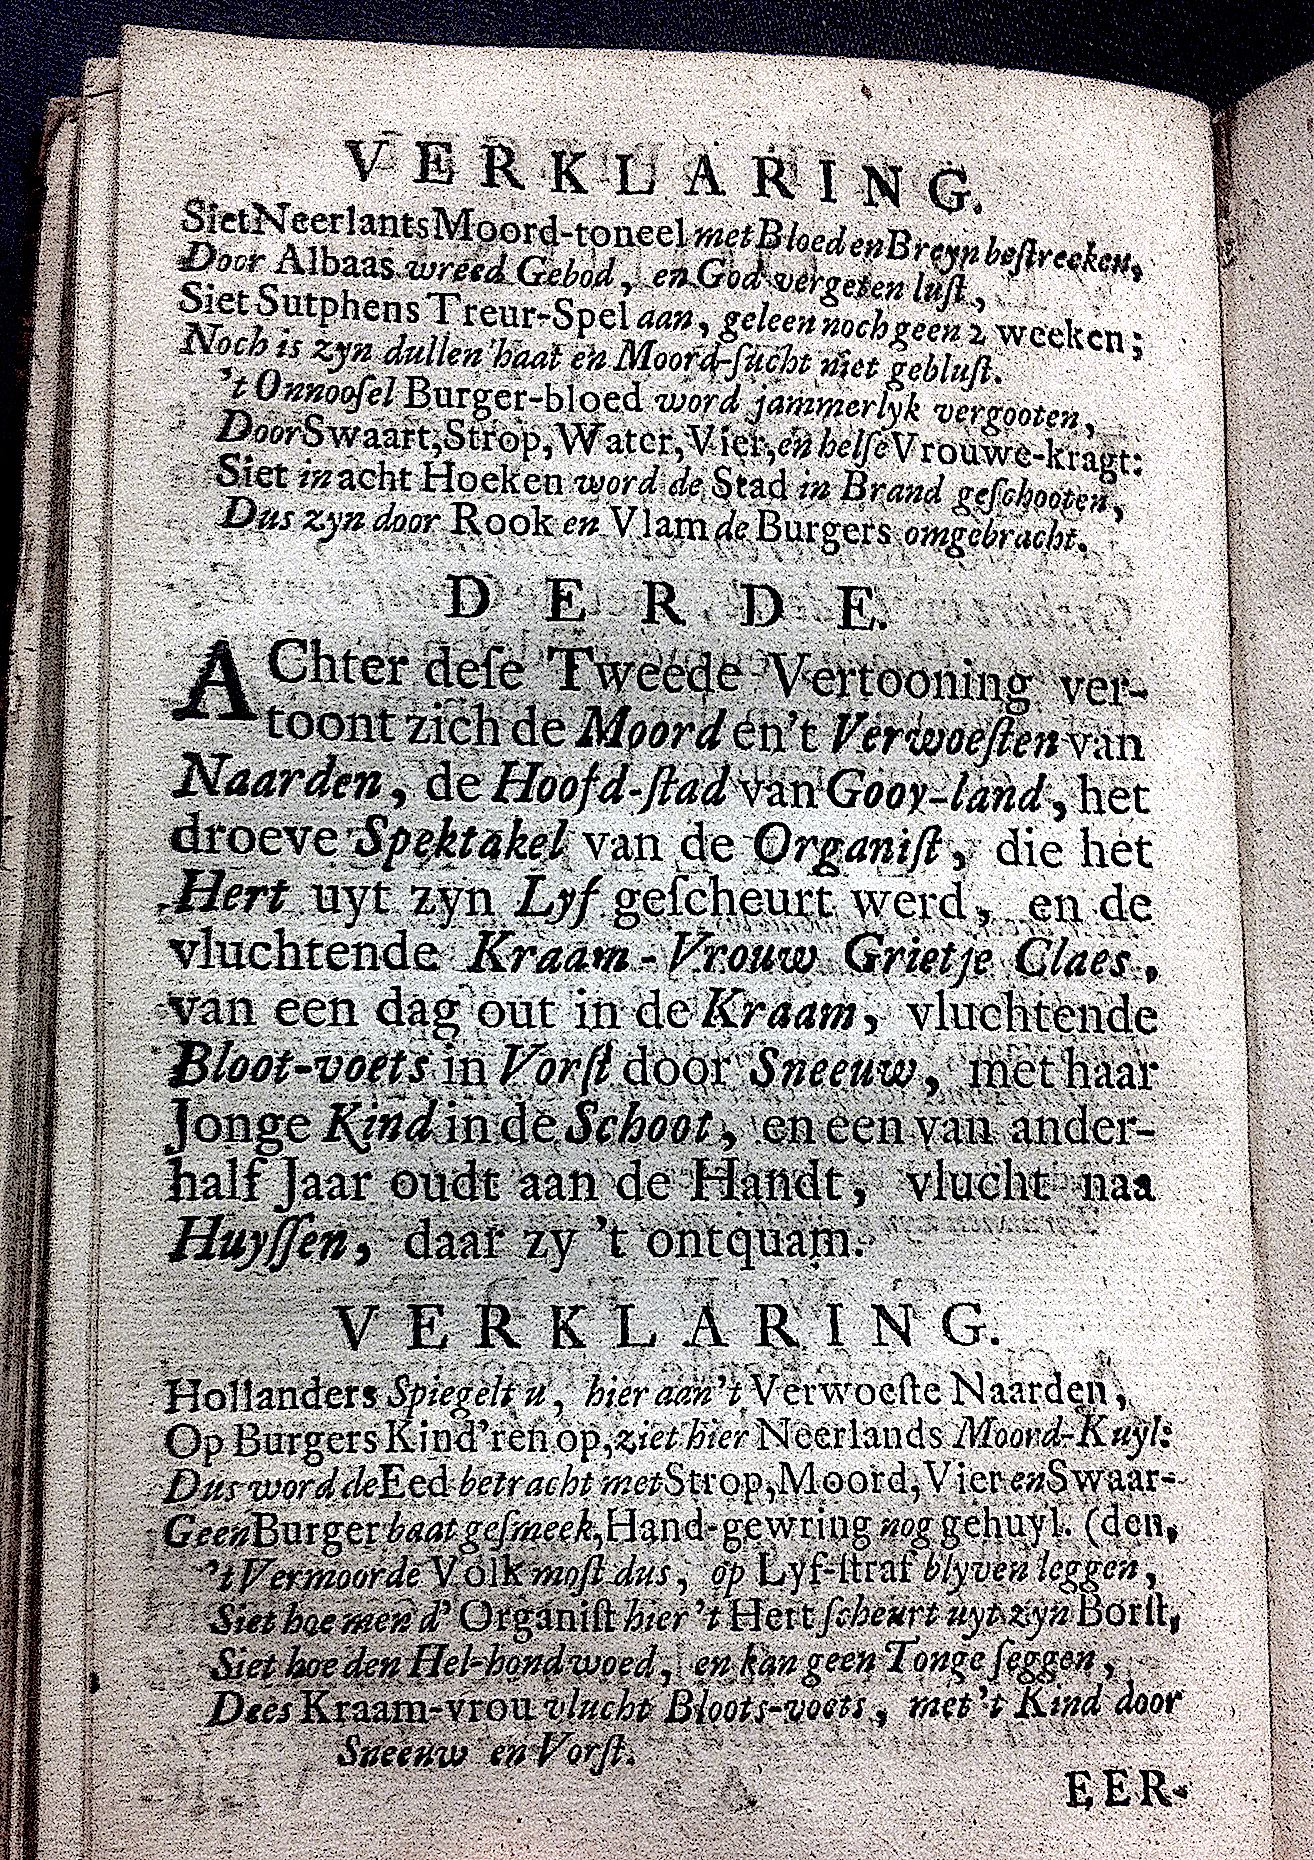 VERKLARING.
Siet Neerlants Moord-toneel met Bloed en Breyn beſtreeken,
Door Albaas wreed Gebod, en God vergeten luſt,
Siet Sutphens Treur-Spel aan, geleen noch geen 2 weeken;
Noch is zyn dullen haat en Moord-ſucht niet gebluſt.
't Onnooſel Burger-bloed word jammerlyk vergooten,
Door Swaart, Strop, Water, Vier, en helſe Vrouwe-kragt:
Siet in acht Hoeken word de Stad in Brand geſchooten,
Dus zyn door Rook en Vlam de Burgers omgebracht.
DERDE.
AChter deſe Tweede Vertooning ver-
toont zich de Moord en't Verwoeſten van
Naarden, de Hoofd-ſtad van Gooy-land, het
droeve Spektakel van de Organiſt, die het
Hert uyt zyn Lyf geſcheurt werd, en de
vluchtende Kraam-Vrouw Grietje Claes,
van een dag out in de Kraam, vluchtende
Bloot-voets in Vorſt door Sneeuw, met haar
Jonge Kind in de Schoot, en een van ander-
half Jaar oudt aan de Handt, vlucht naa
Huyſſen, daar zy 't ontquam.
VERKLARING.
Hollanders Spiegelt u, hier aan't Verwoeſte Naarden,
Op Burgers Kind'ren op, ziet hier Neerlands Moord-Kuyl:
Dus word de Eed betracht met Strop, Moord, Vier en Swaar-
Geen Burger baat geſmeek, Hand-gewring nog gehuyl. (den,
't Vermoorde Volk moſt dus, op Lyf-ſtraf blyven leggen,
Siet hoe men d' Organiſt hier 't Hert ſcheurt uyt zyn Borſt,
Siet hoe den Hel-hond woed, en kan geen Tonge ſeggen,
Dees Kraam-vrou vlucht Bloots-voets, met 't Kind door
Sneeuw en Vorſt.
EER-